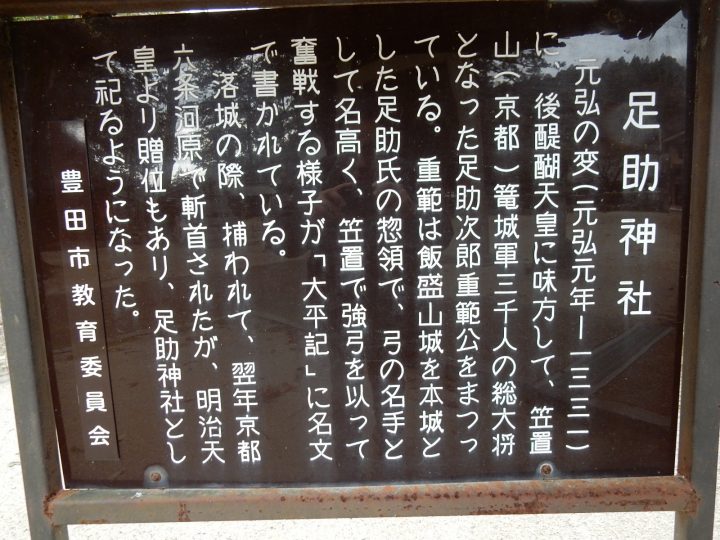 足助神社
元弘の変(元弘元年ー一三三一)
に、後醍醐天皇に味方して、笠置
山(京都)篭城軍三千人の総大将
となった足助次郎重範公をまつっ
ている。重範は飯盛山城を本城と
した足助氏の惣領で、弓の名手と
して名高く、笠置で強弓を以って
奮戦する様子が「大平記」に名文
で書かれている。
落城の際、捕われて、翌年京都
六条河原で斬首されたが、明治天
皇より贈位もあり、足助神社とし
て祀るようになった。
豊田市教育委員会